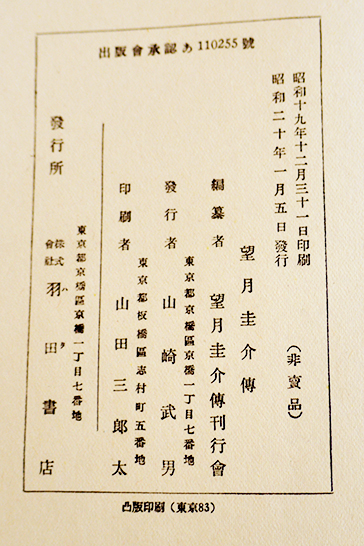 出版會承認あ110255號
昭和十九年十二月三十一日印刷
昭和二十年一月五日發行
(非賣品)
望月圭介傳
編纂者 望月圭介傳刊行會
東京都京橋區京橋一丁目七番地
發行者 山崎武男
東京都板橋區志村町五番地
印刷者 山田三郎太
東京都京橋區京橋一丁目七番地
發行所 株式會社 羽田書店
ハタ
凸版印刷(東京83)